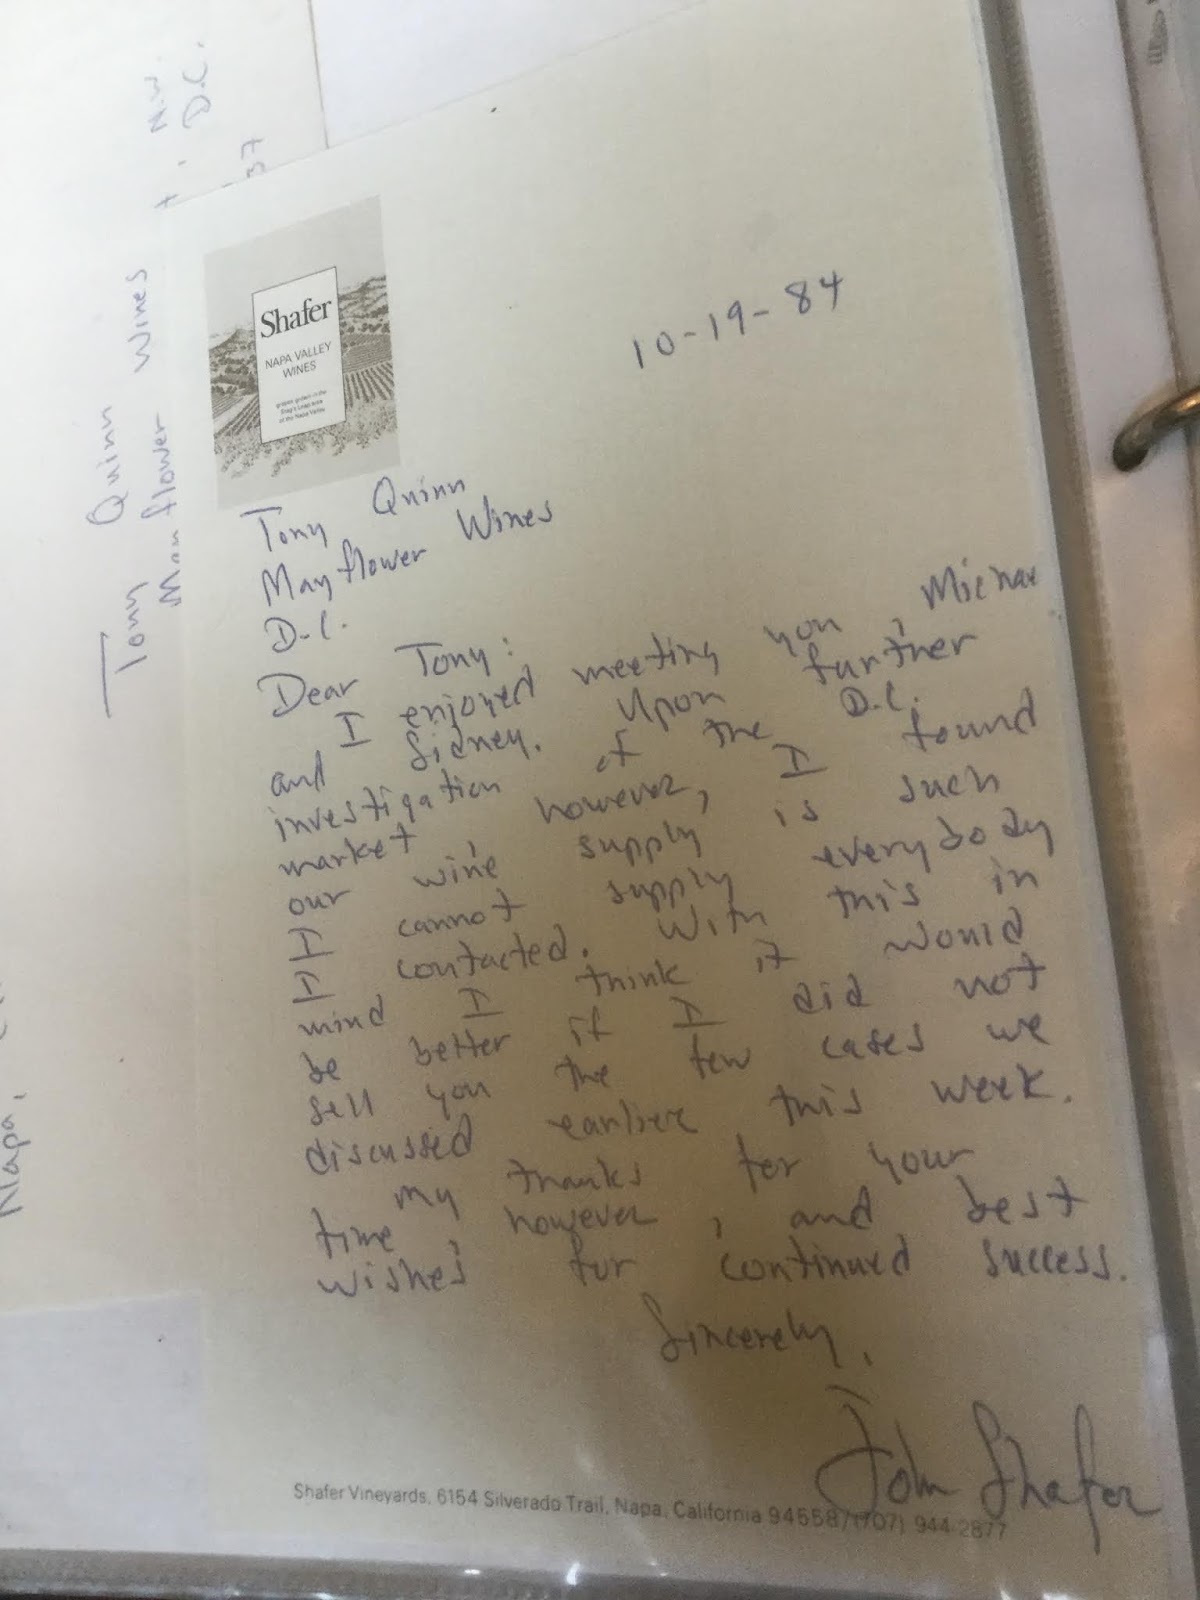 N.W.
D.C.
37
Tony Quinn
Mayflower Wines
Napa,
Shafer
NAPA VALLEY
WINES
grapes grown in the
Stag's Leap area
of the Napa Valley
10-19-84
Tony Quinn
Mayflower Wines
D.C.
Dear Tony:
I enjoyed meeting you, Michae
and Sidney. Upon further
investigation of the D.C.
market, however, I found
our wine supply is such
I cannot supply everybody
I contacted. With this in
mind I think it would
be better if I did not
sell you the few cases we
discussed earlier this week.
My thanks for your
time, however, and best
wishes for continued success.
Sincerely,
John Shafer
Shafer Vineyards, 6154 Silverado Trail, Napa, California 94558/(707) 944-2877